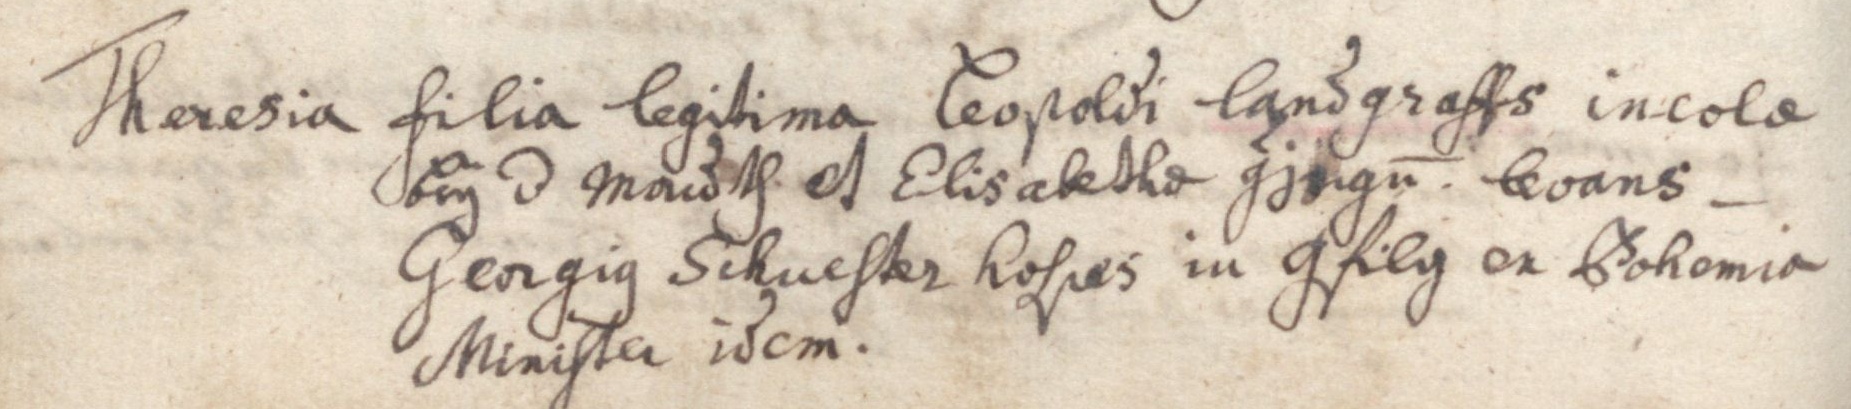 Theresia filia legitima Leopoldi landgraffs incolæ
beÿ d Maudth et Elisabethæ levans
Georgig Schuester hospes in gfily ex Bohemia
Minister idem.